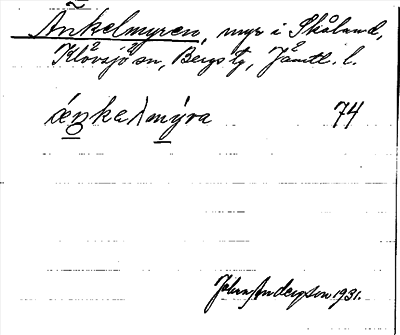 Ankelmyren, myr i Skålan,
Klövsjö sn, Bergs tg, Jämtl. l.
áŋkelmýra 74
John Anderson 1931.